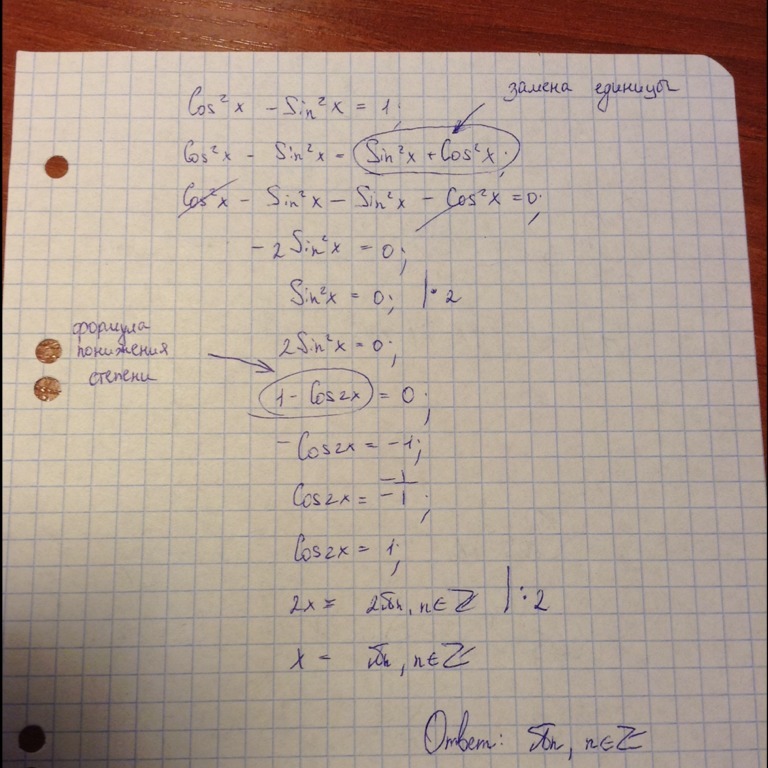 замена единицы
Cos²x - Sin²x = 1;
Cos²x - Sin²x = Sin²x + Cos²x;
Cos²x - Sin²x - Sin²x - Cos²x = 0;
-2Sin²x = 0;
Sin²x = 0; |· 2
формула
понижения
степени
2Sin²x = 0;
1 - Cos2x = 0;
-Cos2x = -1;
Cos2x = -1/-1;
Cos2x = 1;
2x = 2πn, n∈Z |:2
x = πn, n∈Z
Ответ: πn, n∈Z